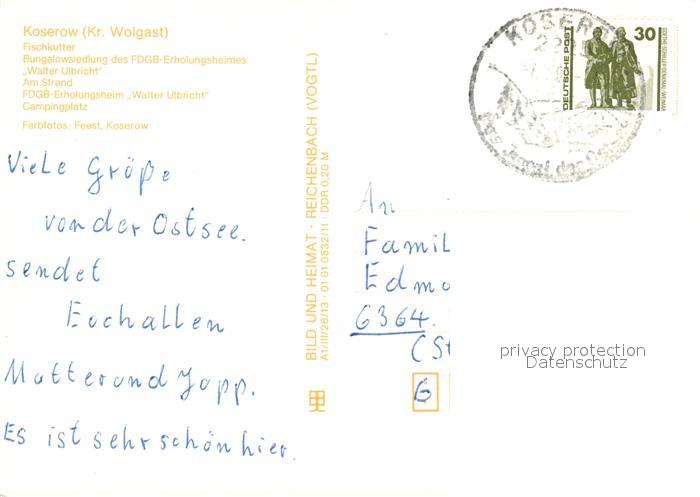 Koserow (Kr. Wolgast)
Fischkutter
Bungalowsiedlung des FDGB-Erholungsheimes
„Walter Ulbricht"
Am Strand
FDGB-Erholungsheim „Walter Ulbricht"
Campingplatz
Farbfotos: Feest, Koserow
Viele Größe
von der Ostsee.
sendet
Euchallen
Mutter und Japp.
Es ist sehr schön hier.
BILD UND HEIMAT · REICHENBACH (VOGTL)
A1/III/26/13 · 01 01 0532/11 · DDR 0,20 M
KOSEROW
DEUTSCHE POST
30
GOETHE-SCHILLER-DENKMAL WEIMAR
An
Famil
Edmo
6364.
(St
6
privacy protection
Datenschutz